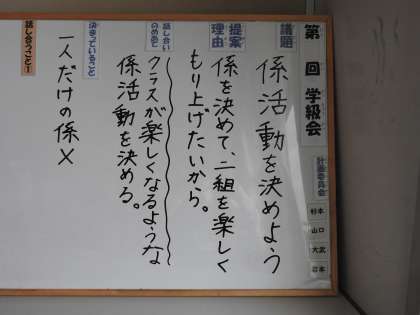 第 回 学級会
計画委員会
杉本
山口
大武
岩本
議題
係活動を決めよう
提案理由
係を決めて、二組を楽しく
もり上げたいから。
話し合いのめあて
クラスが楽しくなるような
係活動を決める。
決まっていること
一人だけの係×
話し合うこと①